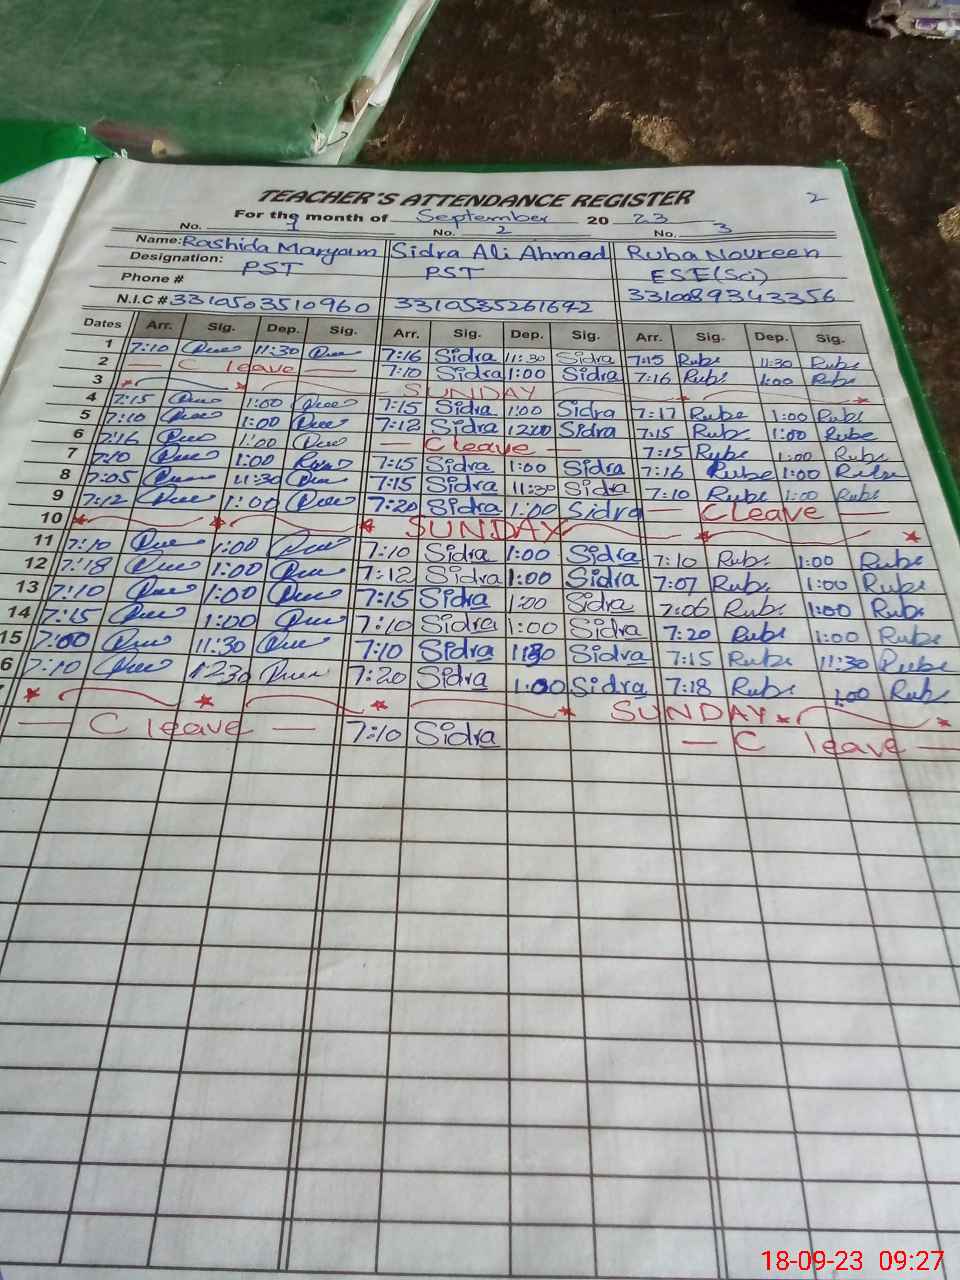 TEACHER'S ATTENDANCE REGISTER 2
For the month of September 20 23
No. 1 No. 2 No. 3
Name: Rashida Maryam Sidra Ali Ahmad Ruba Noureen
Designation: PST PST ESE(Sci)
Phone #
N.I.C # 3310503510960 3310535261642 3310089343356
Dates Arr. Sig. Dep. Sig. Arr. Sig. Dep. Sig. Arr. Sig. Dep. Sig.
1 7:10 11:30 7:16 Sidra 11:30 Sidra 7:15 Rube 11:30 Rube
2 — C leave — 7:10 Sidra 1:00 Sidra 7:16 Rube 1:00 Rube
3 SUNDAY
4 7:15 1:00 7:15 Sidra 1:00 Sidra 7:17 Rube 1:00 Rube
5 7:10 1:00 7:12 Sidra Sidra 7:15 Rube 1:00 Rube
6 7:16 1:00 — C leave — 7:15 Rube 1:00 Rube
7 7:10 1:00 7:15 Sidra 1:00 Sidra 7:16 Rube 1:00 Rube
8 7:05 11:30 7:15 Sidra 11:30 Sidra 7:10 Rube 1:00 Rube
9 7:12 1:00 7:20 Sidra 1:00 Sidra — C Leave —
10 SUNDAY
11 7:10 1:00 7:10 Sidra 1:00 Sidra 7:10 Rube 1:00 Rube
12 7:18 1:00 7:12 Sidra 1:00 Sidra 7:07 Rube 1:00 Rube
13 7:10 1:00 7:15 Sidra 1:00 Sidra 7:06 Rube 1:00 Rube
14 7:15 1:00 7:10 Sidra 1:00 Sidra 7:20 Rube 1:00 Rube
15 7:00 11:30 7:10 Sidra 11:30 Sidra 7:15 Rube 11:30 Rube
6 7:10 7:20 Sidra 1:00 Sidra 7:18 Rube 1:00 Rube
SUNDAY
— C leave — 7:10 Sidra — C leave —
18-09-23 09:27